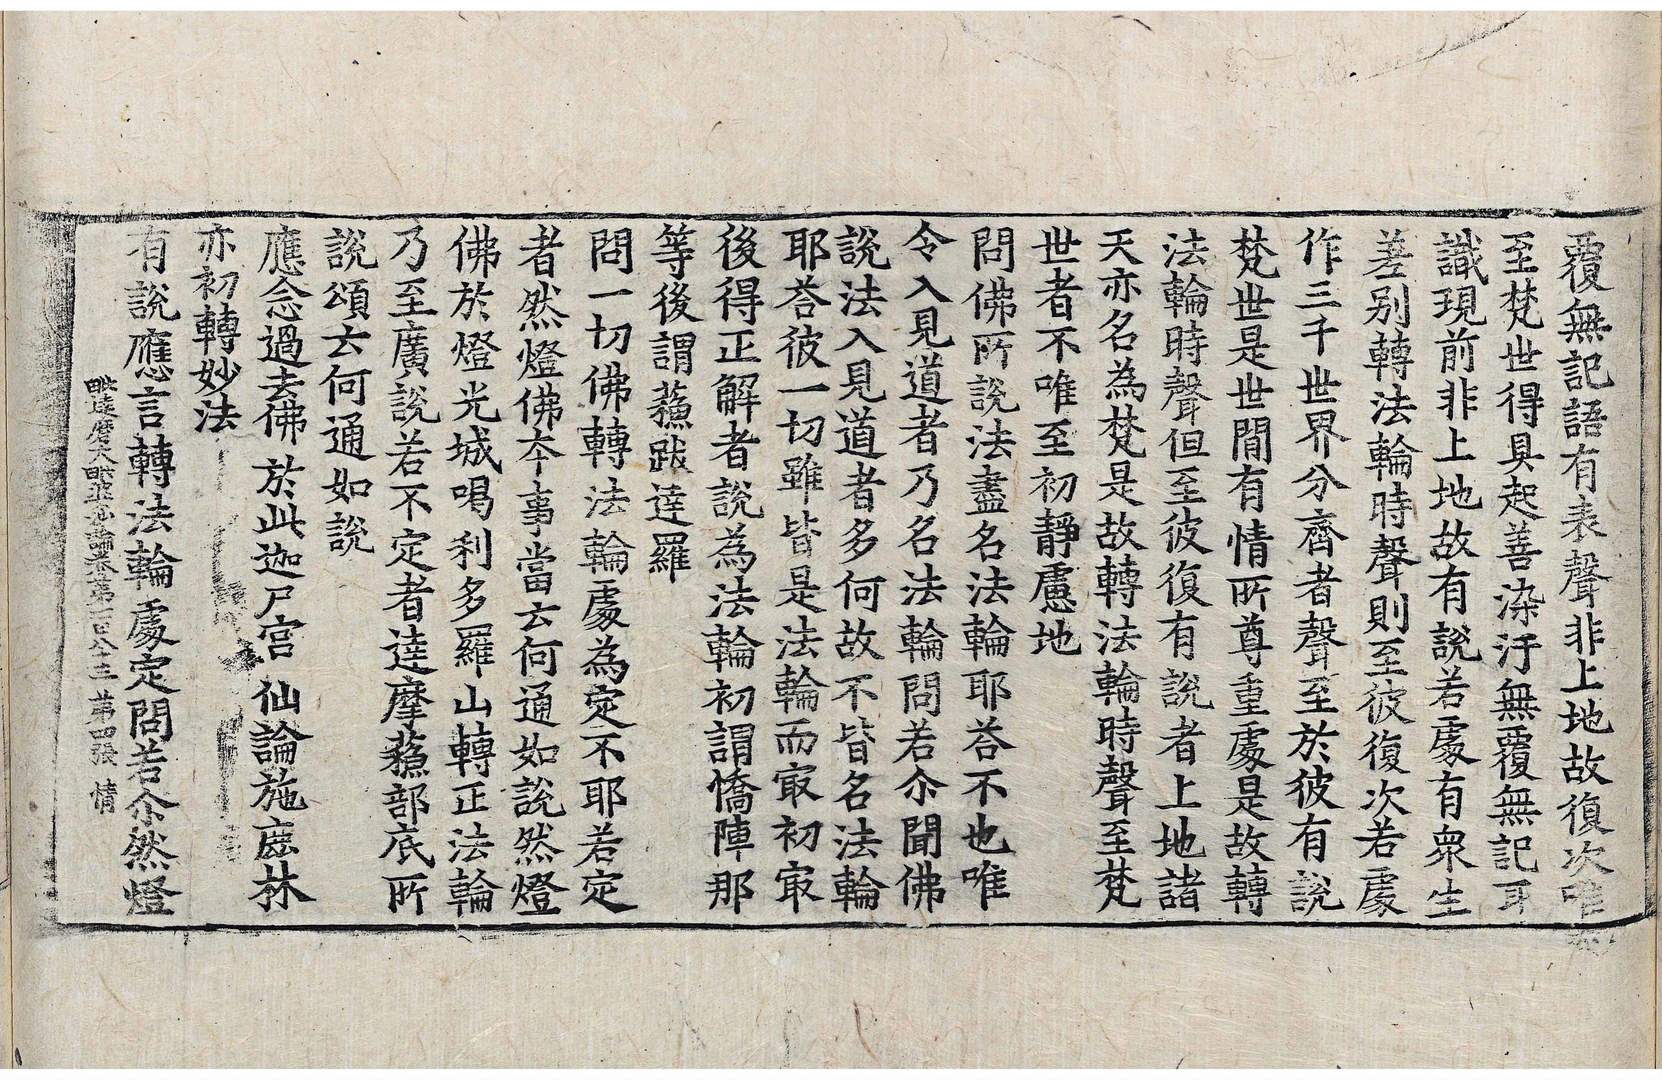 覆無記語有表聲非上地故復次唯
至梵世得具起善染汙無覆無記耳
識現前非上地故有說若處有衆生
差别轉法輪時聲則至彼復次若處
作三千世界分齊者聲至於彼有說
梵世是世閒有情所尊重處是故轉
法輪時聲但至彼復有說者上地諸
天亦名為梵是故轉法輪時聲至梵
世者不唯至初靜慮地
問佛所說法盡名法輪耶荅不也唯
令入見道者乃名法輪問若尒聞佛
說法入見道者多何故不皆名法輪
耶荅彼一切雖皆是法輪而㝡初㝡
後得正解者說為法輪初謂憍陣那
等後謂蘓跋達羅
問一切佛轉法輪處為定不耶若定
者然燈佛夲事當云何通如說然燈
佛於燈光城喝利多羅山轉正法輪
乃至廣說若不定者達摩蘓部底所
說頌云何通如說
應念過去佛 於此迦尸宫 仙論施鹿林
亦初轉妙法
有說應言轉法輪處定問若尒然燈
毗達磨大毗婆沙論卷第一百八十三 第四張 情